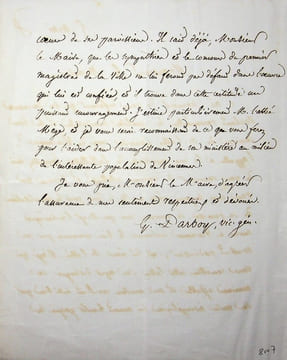 cœur de ses paroissiens. Il sait déjà, Monsieur
le Maire, que les sympathies et le concours du premier
magistrat de la Ville ne lui feront pas défaut dans l'œuvre
qui lui est confiée et il trouve dans cette certitude un
puissant encouragement. J'estime particulièrement M. l'abbé
et je vous serai reconnaissant de ce que vous ferez
pour l'aider dans l'accomplissement de son ministère au milieu
de l'intéressante population de Vincennes.
Je vous prie, Monsieur le Maire, d'agréer
l'assurance de mes sentiments respectueux et dévoués.
G. Darboy, vic. gén.